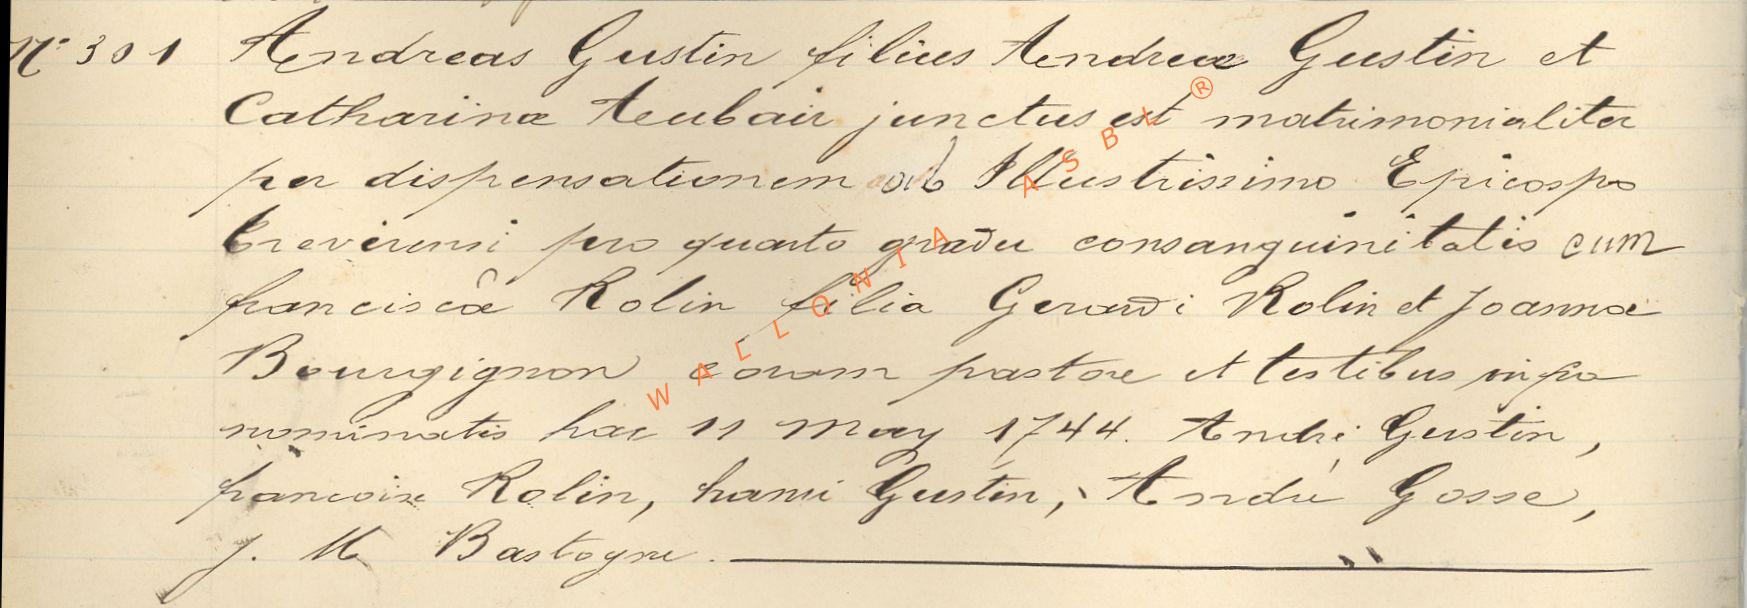 N° 301 Andreas Gustin filius Andreæ Gustin et
Catharinæ Aubair junctus est matrimonialiter
per dispensationem ab Illustrissimo Epicospo
trevirensi pro quarto gradu consanguinitatis cum
franciscâ Rolin filia Gerardi Rolin et Joannæ
Bourgignon coram pastore et testibus infra
nominatis hac 11 May 1744. André Gustin,
francoise Rolin, hanri Gustin, André Gosse,
J. M Bastogne.
WALLONIA ASBL ®